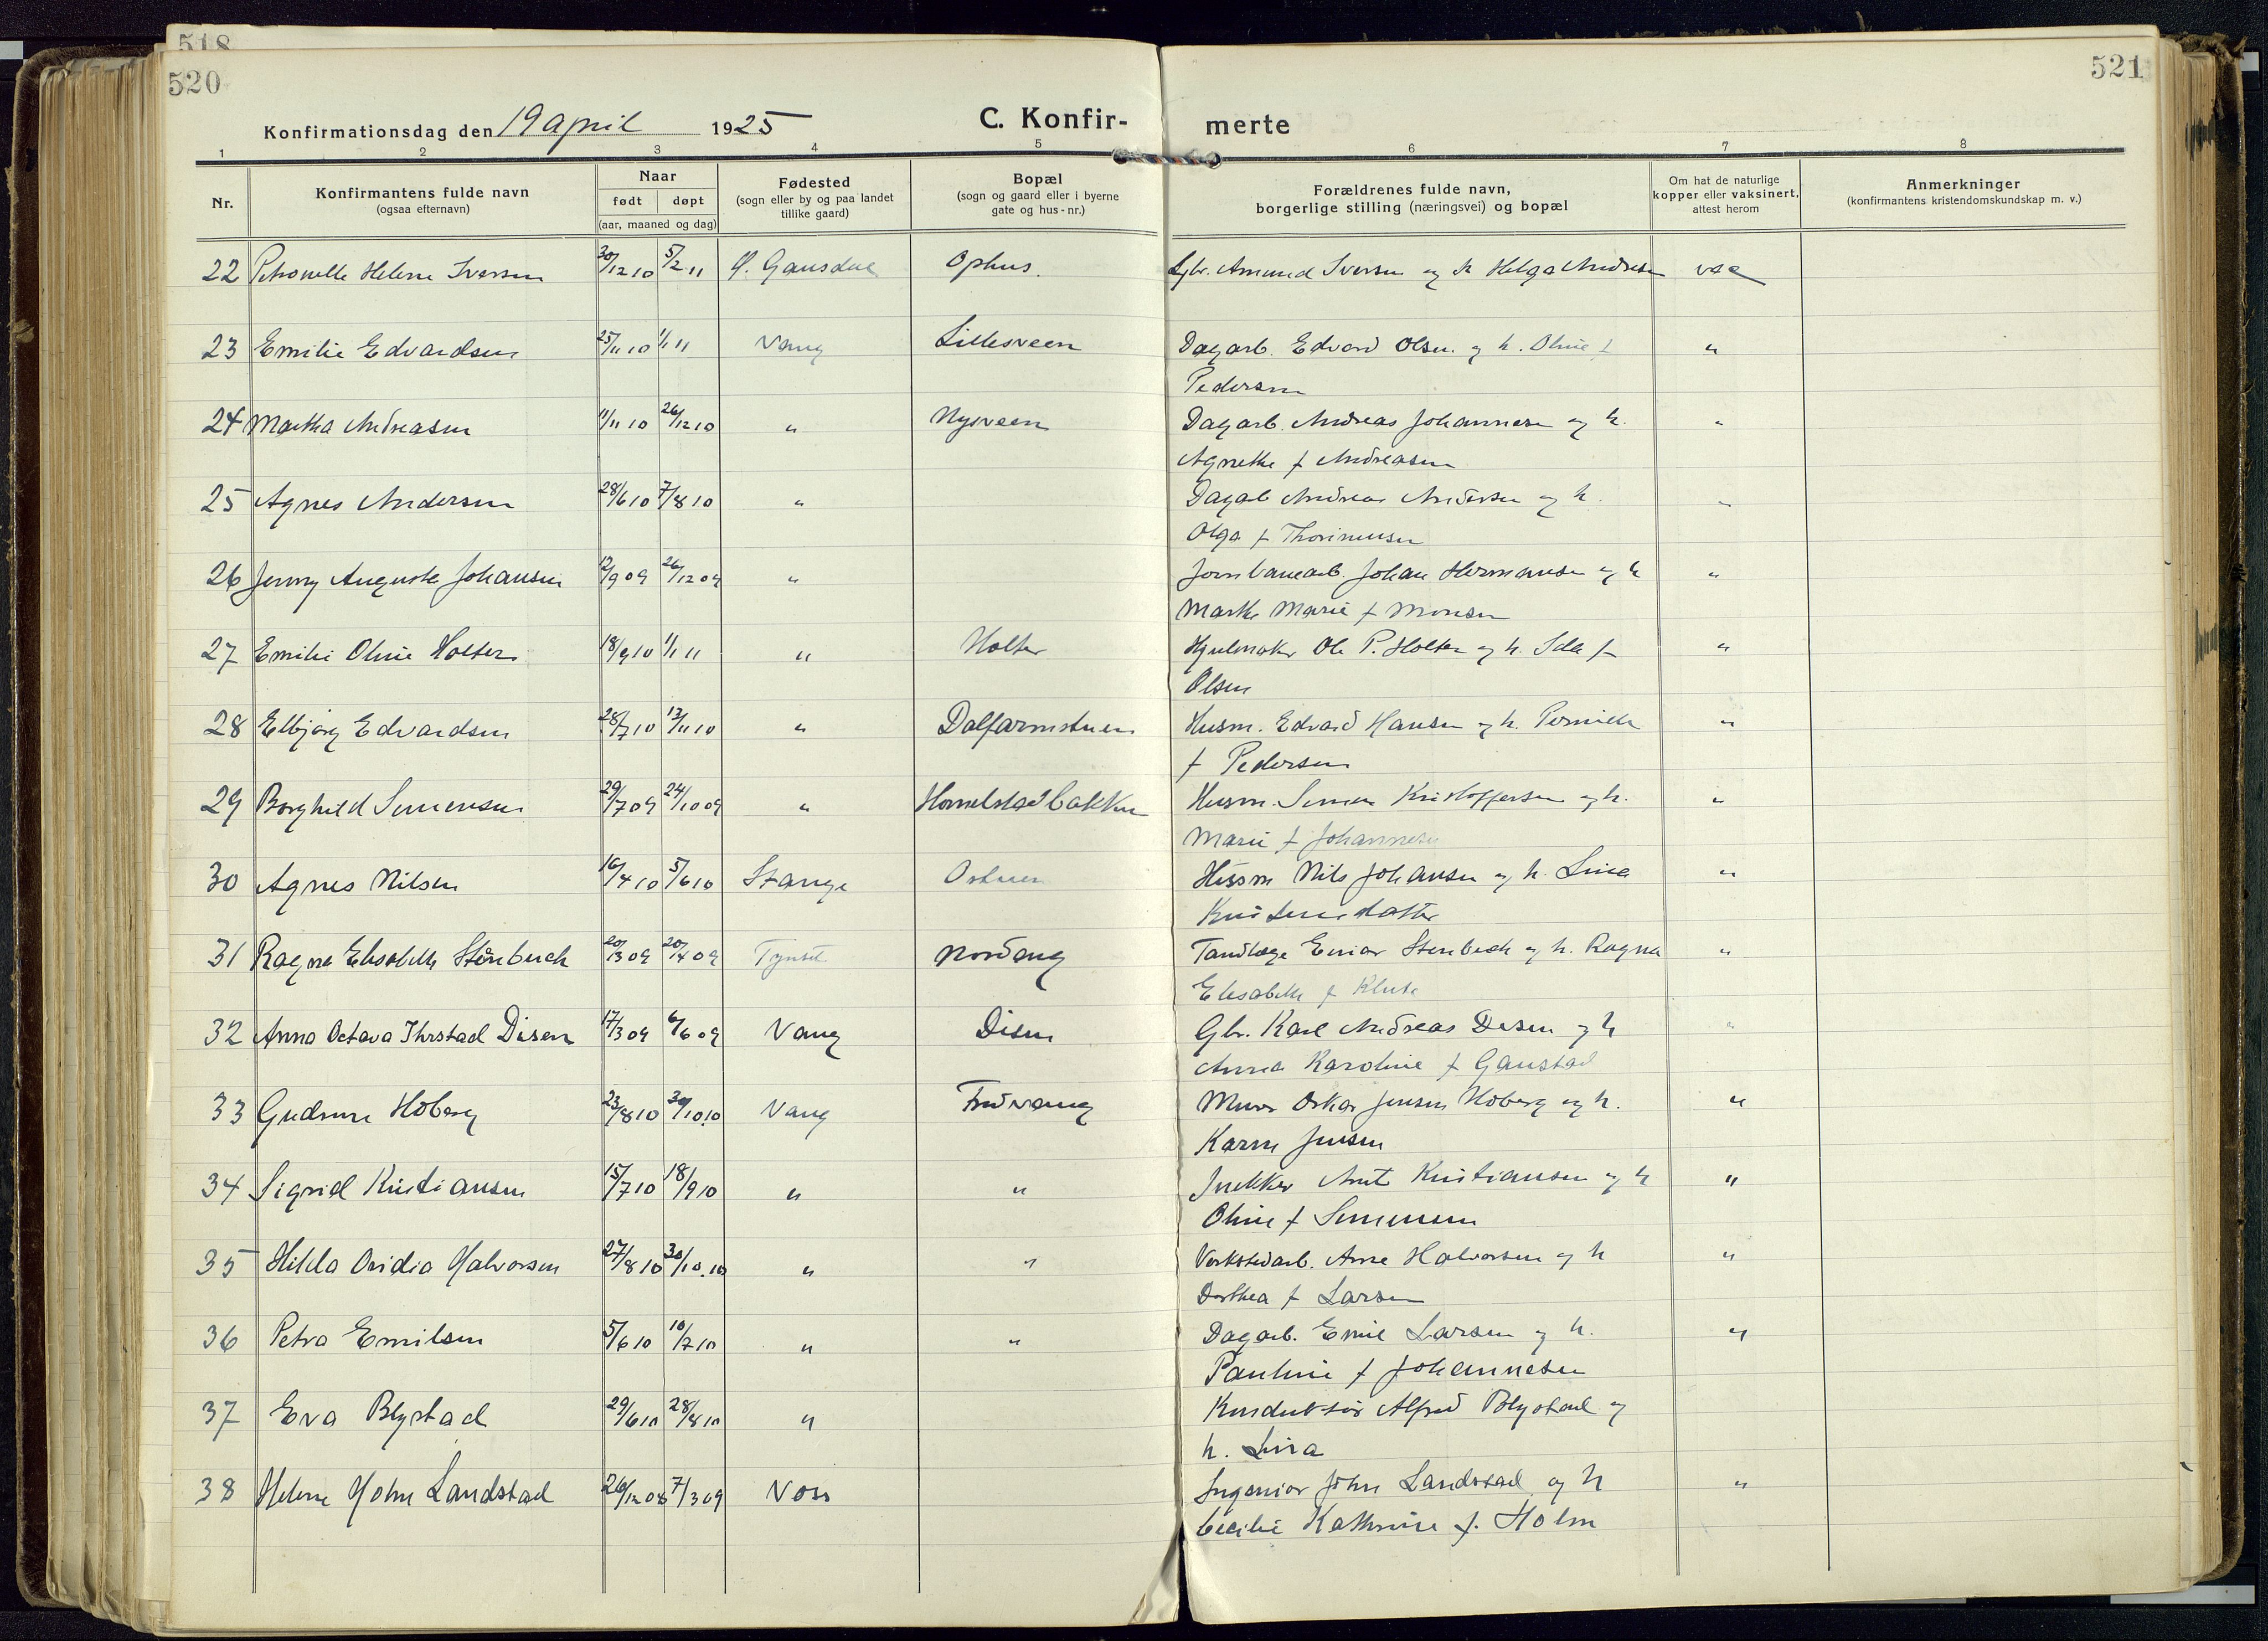 518
520
521
Konfirmationsdag den 19 april 1925
C. Konfir-
merte
1 2 3 4 5 6 7 8
Nr.
Konfirmantens fulde navn
(ogsaa efternavn)
Naar
født døpt
(aar, maaned og dag)
Fødested
(sogn eller by og paa landet
tillike gaard)
Bopæl
(sogn og gaard eller i byerne
gate og hus-nr.)
Forældrenes fulde navn,
borgerlige stilling (næringsvei) og bopæl
Om hat de naturlige
kopper eller vaksinert,
attest herom
Anmerkninger
(konfirmantens kristendomskundskap m. v.)
22 Petronelle Helene Iversen 30/12 10 5/2 11 Ø. Gausdal Ophus. Amund Iversen og h Helga Andresen vac
23 Emilie Edvardsen 25/11 10 1/1 11 Vang Lillesveen Dagarb. Edvard Olsen og h. Oline f "
Pedersen
24 Martha Andreasen 11/11 10 26/12 10 " Nysveen Dagarb. Andreas Johannesen og h. "
Agnethe f Andreasen
25 Agnes Andersen 28/6 10 7/8 10 " Dagarb Andreas Andersen og h. "
Olga f Thorinusen
26 Jenny Auguste Johansen 12/9 09 26/12 09 " Jernbanearb. Johan Hermansen og h "
Marthe Marie f Monsen
27 Emilie Oline Holter 18/9 10 1/1 11 " Holter Hjulmaker Ole P. Holter og h. Ida f "
Olsen
28 Elbjørg Edvardsen 28/7 10 13/11 10 " Dalfarmstuen Husm. Edvard Hansen og h. Pernille "
f Pedersen
29 Borghild Simensen 29/7 09 24/10 09 " Homelstadbakken Husm. Simen Kristoffersen og h. "
Marie f Johannesen
30 Agnes Nilsen 16/4 10 5/6 10 Stange Ostuen Husm Nils Johansen og h. Lina "
Kristensdatter
31 Ragna Elisabeth Stenbuch 20/3 09 20/4 09 Tynset Nordang Tandlæge Einar Stenbuch og h. Ragna "
Elisabeth f Klute
32 Anna Octava Ihrstad Disen 17/3 09 6/6 09 Vang Disen Gbr. Karl Andreas Disen og h "
Anna Karoline f Gaustad
33 Gudrun Hoberg 23/8 10 30/10.10 Vang Fredvang Murer Oskar Jensen Hoberg og h. "
Karen Jensen
34 Sigrid Kristiansen 15/7 10 18/9 10 " " Snekker Arnt Kristiansen og h "
Oline f Simensen
35 Hilda Ovidia Halvorsen 27/8 10 30/10.10 " " Verkstedarb. Arne Halvorsen og h "
Dorthea f Larsen
36 Petra Emilsen 5/6 10 10/7 10 " " Dagarb. Emil Larsen og h. "
Pauline f Johannesen
37 Eva Blystad 29/6 10 28/8 10 " Konduktør Alfred Blystad og
h. Lina
38 Helene Holm Landstad 26/12 08 7/3 09 Voss Ingeniør John Landstad og h "
Cecilie Kathrine f. Holm